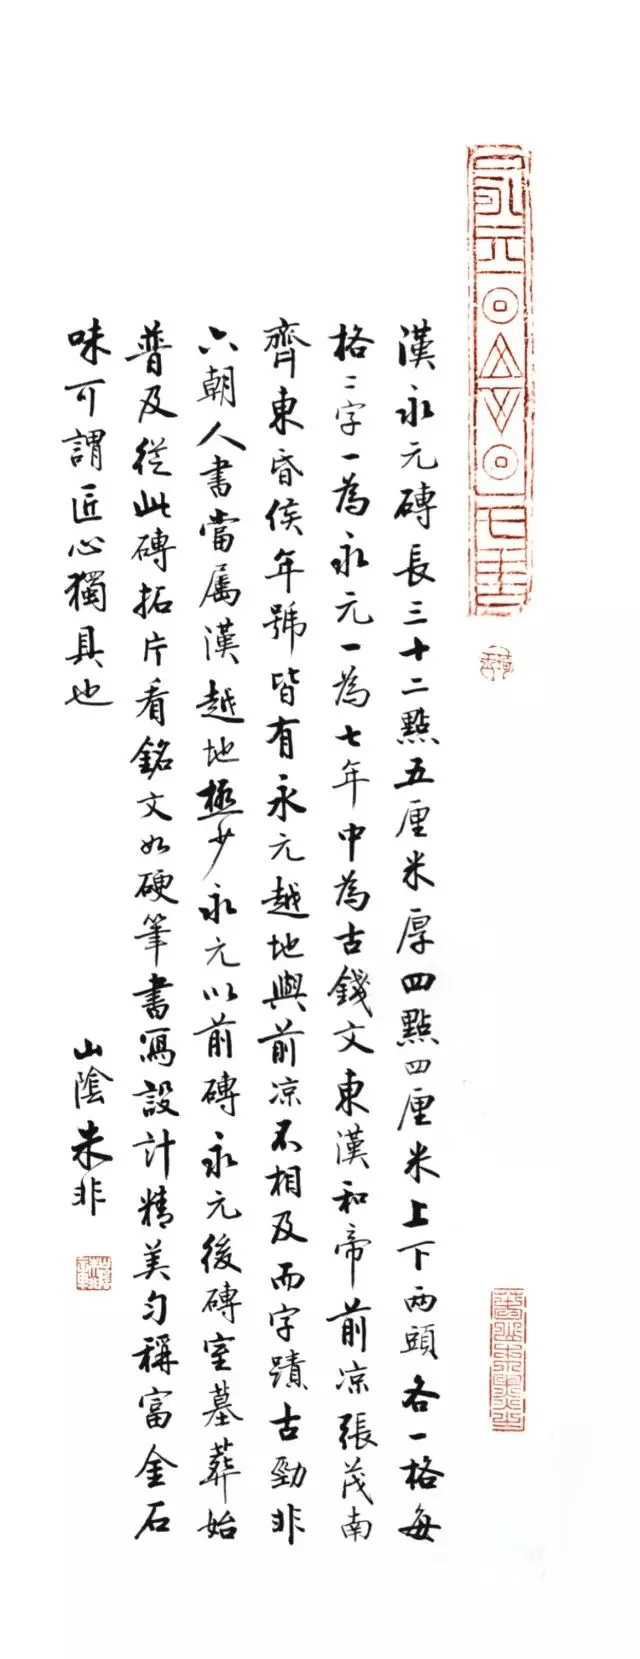 漢永元磚長三十二點五厘米厚四點四厘米上下兩頭各一格每
格二字一為永元一為七年中為古錢文東漢和帝前凉張茂南
齊東昏侯年號皆有永元越地與前凉不相及而字蹟古勁非
六朝人書當属漢越地極少永元以前磚永元後磚室墓葬始
普及從此磚拓片看銘文如硬筆書寫設計精美勻稱富金石
味可謂匠心獨具也
山陰朱非
永元
七年